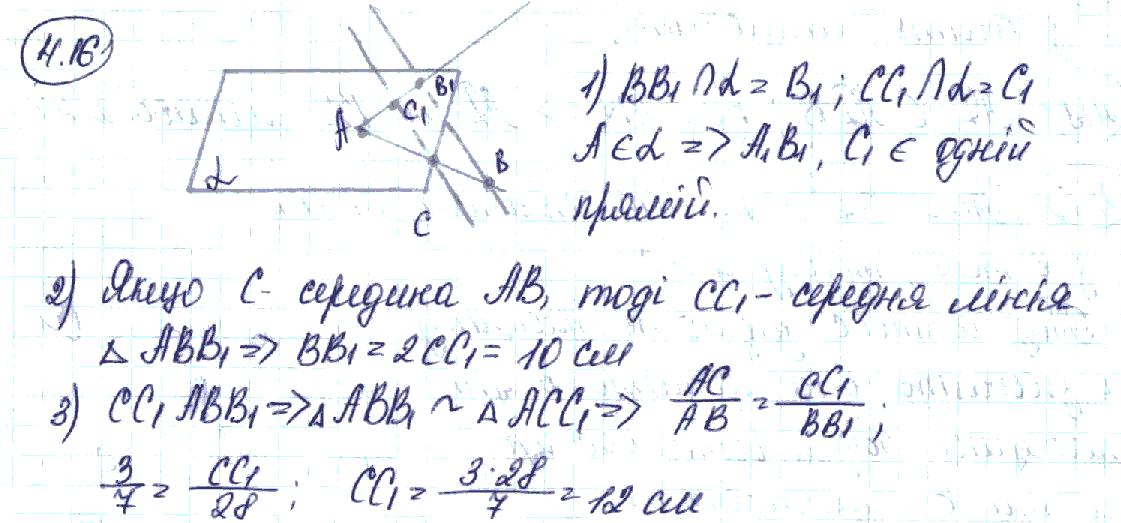 4.16
1) BB₁ ∩ α = B₁; CC₁ ∩ α = C₁
A ∈ α => A₁B₁, C₁ ∈ одній
прямій.
A C₁ B₁ B C α
2) Якщо C - середина AB, тоді CC₁ - середня лінія
△ ABB₁ => BB₁ = 2CC₁ = 10 см
3) CC₁ ABB₁ => △ ABB₁ ~ △ ACC₁ => AC/AB = CC₁/BB₁;
3/7 = CC₁/28; CC₁ = 3·28/7 = 12 см